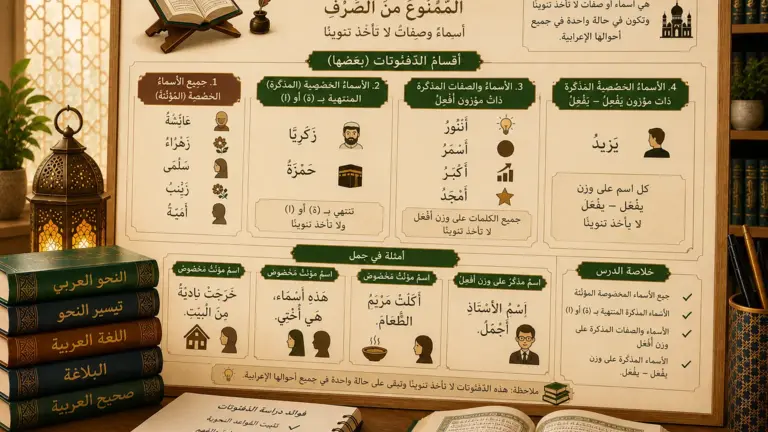 الْمَمْنُوعُ مِنَ الصَّرْفِ
أسماءٌ وصفاتٌ لا تأخذ تنوينًا
هي أسماء أو صفات لا تأخذ تنوينًا
وتكون في حالة واحدة في جميع
أحوالها الإعرابية.
أقسام الدّفنوتات (بعضها)
1. جميع الأسماء
الخصّية (المؤنّثة)
عَائِشَةُ
زَهْرَاءُ
سَلْمَى
زَيْنَبُ
أُمَيَّةُ
2. الأسماء الخصّصية (المذكّرة)
المنتهية بـ (ة) أو (ا)
زَكَرِيَّا
حَمْزَةُ
تنتهي بـ (ة) أو (ا)
ولا تأخذ تنوينًا
3. الأسماء والصفات المذكّرة
ذات مؤزون أفْعِلُ
أَنْنُورُ
أَسْمَرُ
أَكْبَرُ
أَمْجَدُ
جميع الكلمات على وزن أفْعَل
لا تأخذ تنوينًا
4. الأسماء الخصّصية المذكّرة
ذات مؤزون يَفْعِلُ – يَفْعِلُ
يَزِيدُ
كل اسم على وزن
يَفْعَل – يفْعَل
لا يأخذ تنوينًا
أمثلة في جمل
اسم مؤنّث مَخْصُوص
خَرَجَتْ نِادِيَةُ
مِنَ الْبَيْتِ.
اسم مؤنّث مَخْصُوص
هَذِهِ أَسْمَاء،
هِيَ أُخْتِي.
اسم مؤنّث مَخْصُوص
أَكَلَتْ مَرْيَمُ
الطَّعَامَ.
اسم مذكّر على وزن أفْعِلُ
اِسْمُ الْأُسْتَاذِ
أَجْمَلُ.
خلاصة الدرس
جمع الأسماء المخصوصة المؤنّثة
الأسماء المذكرة المنتهية بـ (ة) أو (ا)
الأسماء والصفات المذكرة على
وزن أفْعَل
الأسماء المذكّرة على وزن
يَفْعَل – يَفْعَل.
ملاحظة: هذه الدّفنوتات لا تأخذ تنوينًا وتبقى على حالة واحدة في جميع أحوالها الإعرابية.
النحو العربي
تيسير النحو
اللغة العربية
البلاغة
صحيح العربية
فوائد دراسة الدّفنوتات
تثبيت القواعد النحوية